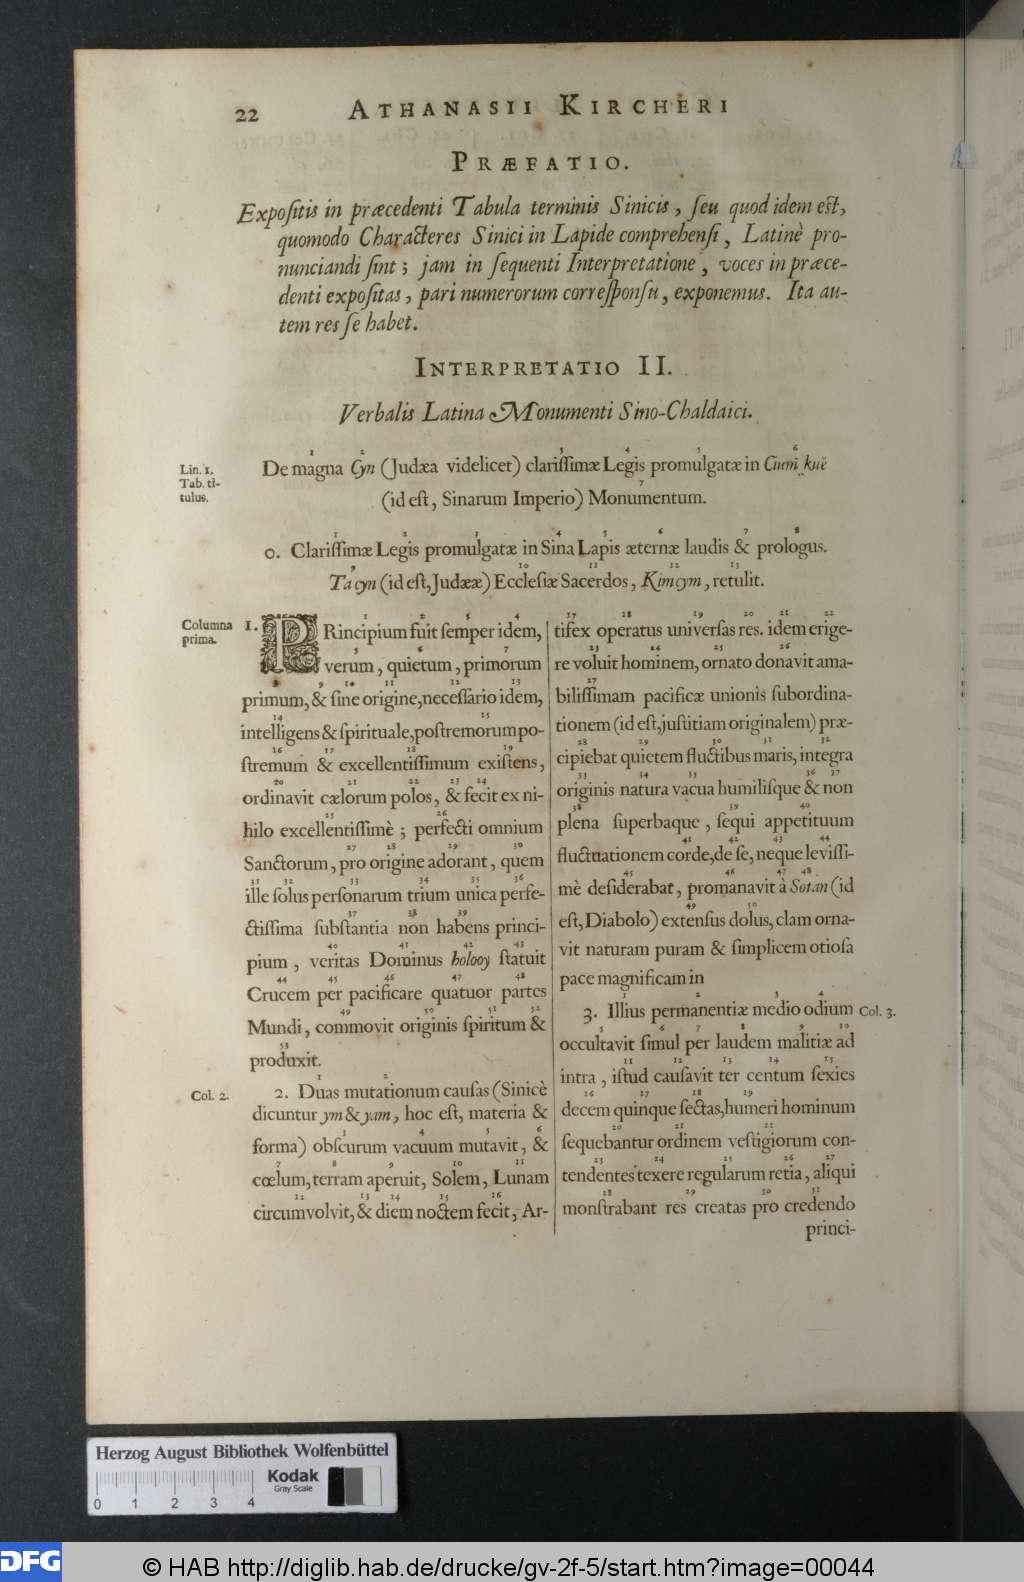 22 ATHANASII KIRCHERI
PRÆFATIO.
Expoſitis in præcedenti Tabula terminis Sinicis, ſeu quod idem eſt,
quomodo Characteres Sinici in Lapide comprehenſi, Latinè pro-
nunciandi ſint; jam in ſequenti Interpretatione, voces in præce-
denti expoſitas, pari numerorum correſponſu, exponemus. Ita au-
tem res ſe habet.
INTERPRETATIO II.
Verbalis Latina Monumenti Sino-Chaldaici.
Lin. 1.
Tab. ti-
tulus.
1 2 3 4 5 6
De magna Cyn (Judæa videlicet) clariſſimæ Legis promulgatæ in Cium kuë
7
(id eſt, Sinarum Imperio) Monumentum.
1 2 3 4 5 6 7 8
0. Clariſſimæ Legis promulgatæ in Sina Lapis æternæ laudis & prologus.
9 10 11 12 13
Ta cyn (id eſt, Judææ) Eccleſiæ Sacerdos, Kimcym, retulit.
Columna
prima.
1 2 3 4
1. PRincipium fuit ſemper idem,
5 6 7
verum, quietum, primorum
8 9 10 11 12 13
primum, & ſine origine, neceſſario idem,
14 15
intelligens & ſpirituale, poſtremorum po-
16 17 18 19
ſtremum & excellentiſſimum exiſtens,
20 21 22 23 24
ordinavit cælorum polos, & fecit ex ni-
25 26
hilo excellentiſſimè; perfecti omnium
27 28 29 30
Sanctorum, pro origine adorant, quem
31 32 33 34 35 36
ille ſolus perſonarum trium unica perfe-
37 38 39
ctiſſima ſubſtantia non habens princi-
40 41 42 43
pium, veritas Dominus holooy ſtatuit
44 45 46 47 48
Crucem per pacificare quatuor partes
49 50 51 52
Mundi, commovit originis ſpiritum &
53
produxit.
Col. 2.
1 2
2. Duas mutationum cauſas (Sinicè
dicuntur ym & yam, hoc eſt, materia &
3 4 5 6
forma) obſcurum vacuum mutavit, &
7 8 9 10 11
cœlum, terram aperuit, Solem, Lunam
12 13 14 15 16
circumvolvit, & diem noctem fecit, Ar-
17 18 19 20 21 22
tifex operatus univerſas res. idem erige-
23 24 25 26
re voluit hominem, ornato donavit ama-
27
biliſſimam pacificæ unionis ſubordina-
tionem (id eſt, juſtitiam originalem) præ-
28 29 30 31 32
cipiebat quietem fluctibus maris, integra
33 34 35 36 37
originis natura vacua humiliſque & non
38 39 40
plena ſuperbaque, ſequi appetituum
41 42 43 44
fluctuationem corde, de ſe, neque leviſſi-
45 46 47 48
mè deſiderabat, promanavit à Sotan (id
49 50
eſt, Diabolo) extenſus dolus, clam orna-
vit naturam puram & ſimplicem otioſa
pace magnificam in
1 2 3 4
3. Illius permanentiæ medio odium
Col. 3.
5 6 7 8 9 10
occultavit ſimul per laudem malitiæ ad
11 12 13 14 15
intra, iſtud cauſavit ter centum ſexies
16 17 18 19
decem quinque ſectas, humeri hominum
20 21 22
ſequebantur ordinem veſtigiorum con-
23 24 25 26 27
tendentes texere regularum retia, aliqui
28 29 30 31
monſtrabant res creatas pro credendo
princi-
Herzog August Bibliothek Wolfenbüttel
0 1 2 3 4
Kodak
Gray Scale
DFG © HAB http://diglib.hab.de/drucke/gv-2f-5/start.htm?image=00044